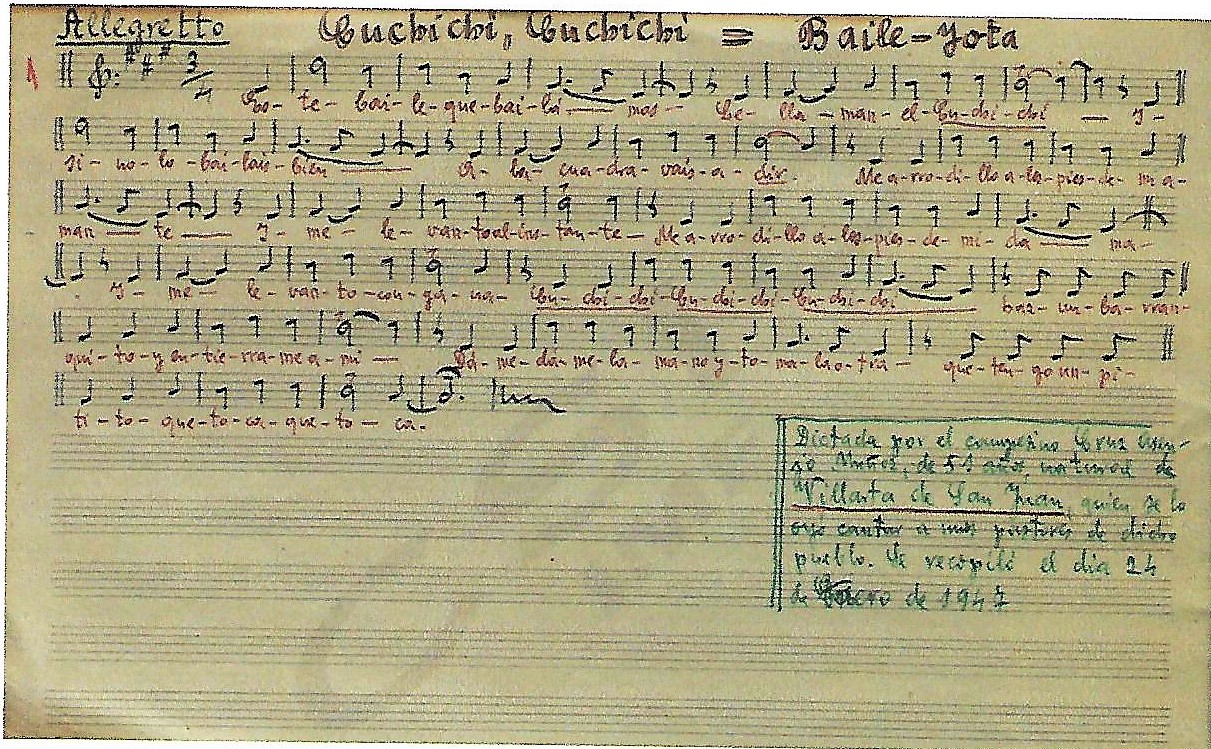 Allegretto Cuchichi, Cuchichi = Baile-Yota
1 3 4
Es-te-bai-le-que-bai-lá- mos- Se- lla-man-el-Cu-chi-chi - Y-
si-no-lo-bai-lais-bien A-la-cua-dra-vais-a-dir. Me a-rro-di-llo a-los-pies-de- mi a-
man- te- Y- me- le- van-to al-ins-tan-te- Me a-rro-di-llo a-los-pies-de-mi-da- ma-
. Y-me- le-van-to-con-ga-na- Cu-chi-chi-Cu-chi-chi-Cu-chi-chi haz-un-ba-rran-
qui-to-y en-tie-rra-me a-mi- Dá-me-dá-me-la-ma-no y-to-ma-la o-tra- que-ten-go un-pi-
ti-to-que-to-ca-que-to-ca-
Dictada por el campesino Cruz
Muñoz, de 51 años, natural de
Villarta de San Juan, quien se lo
oyó cantar a unos pastores de dicho
pueblo. Se recopiló el dia 24
de Enero de 1947